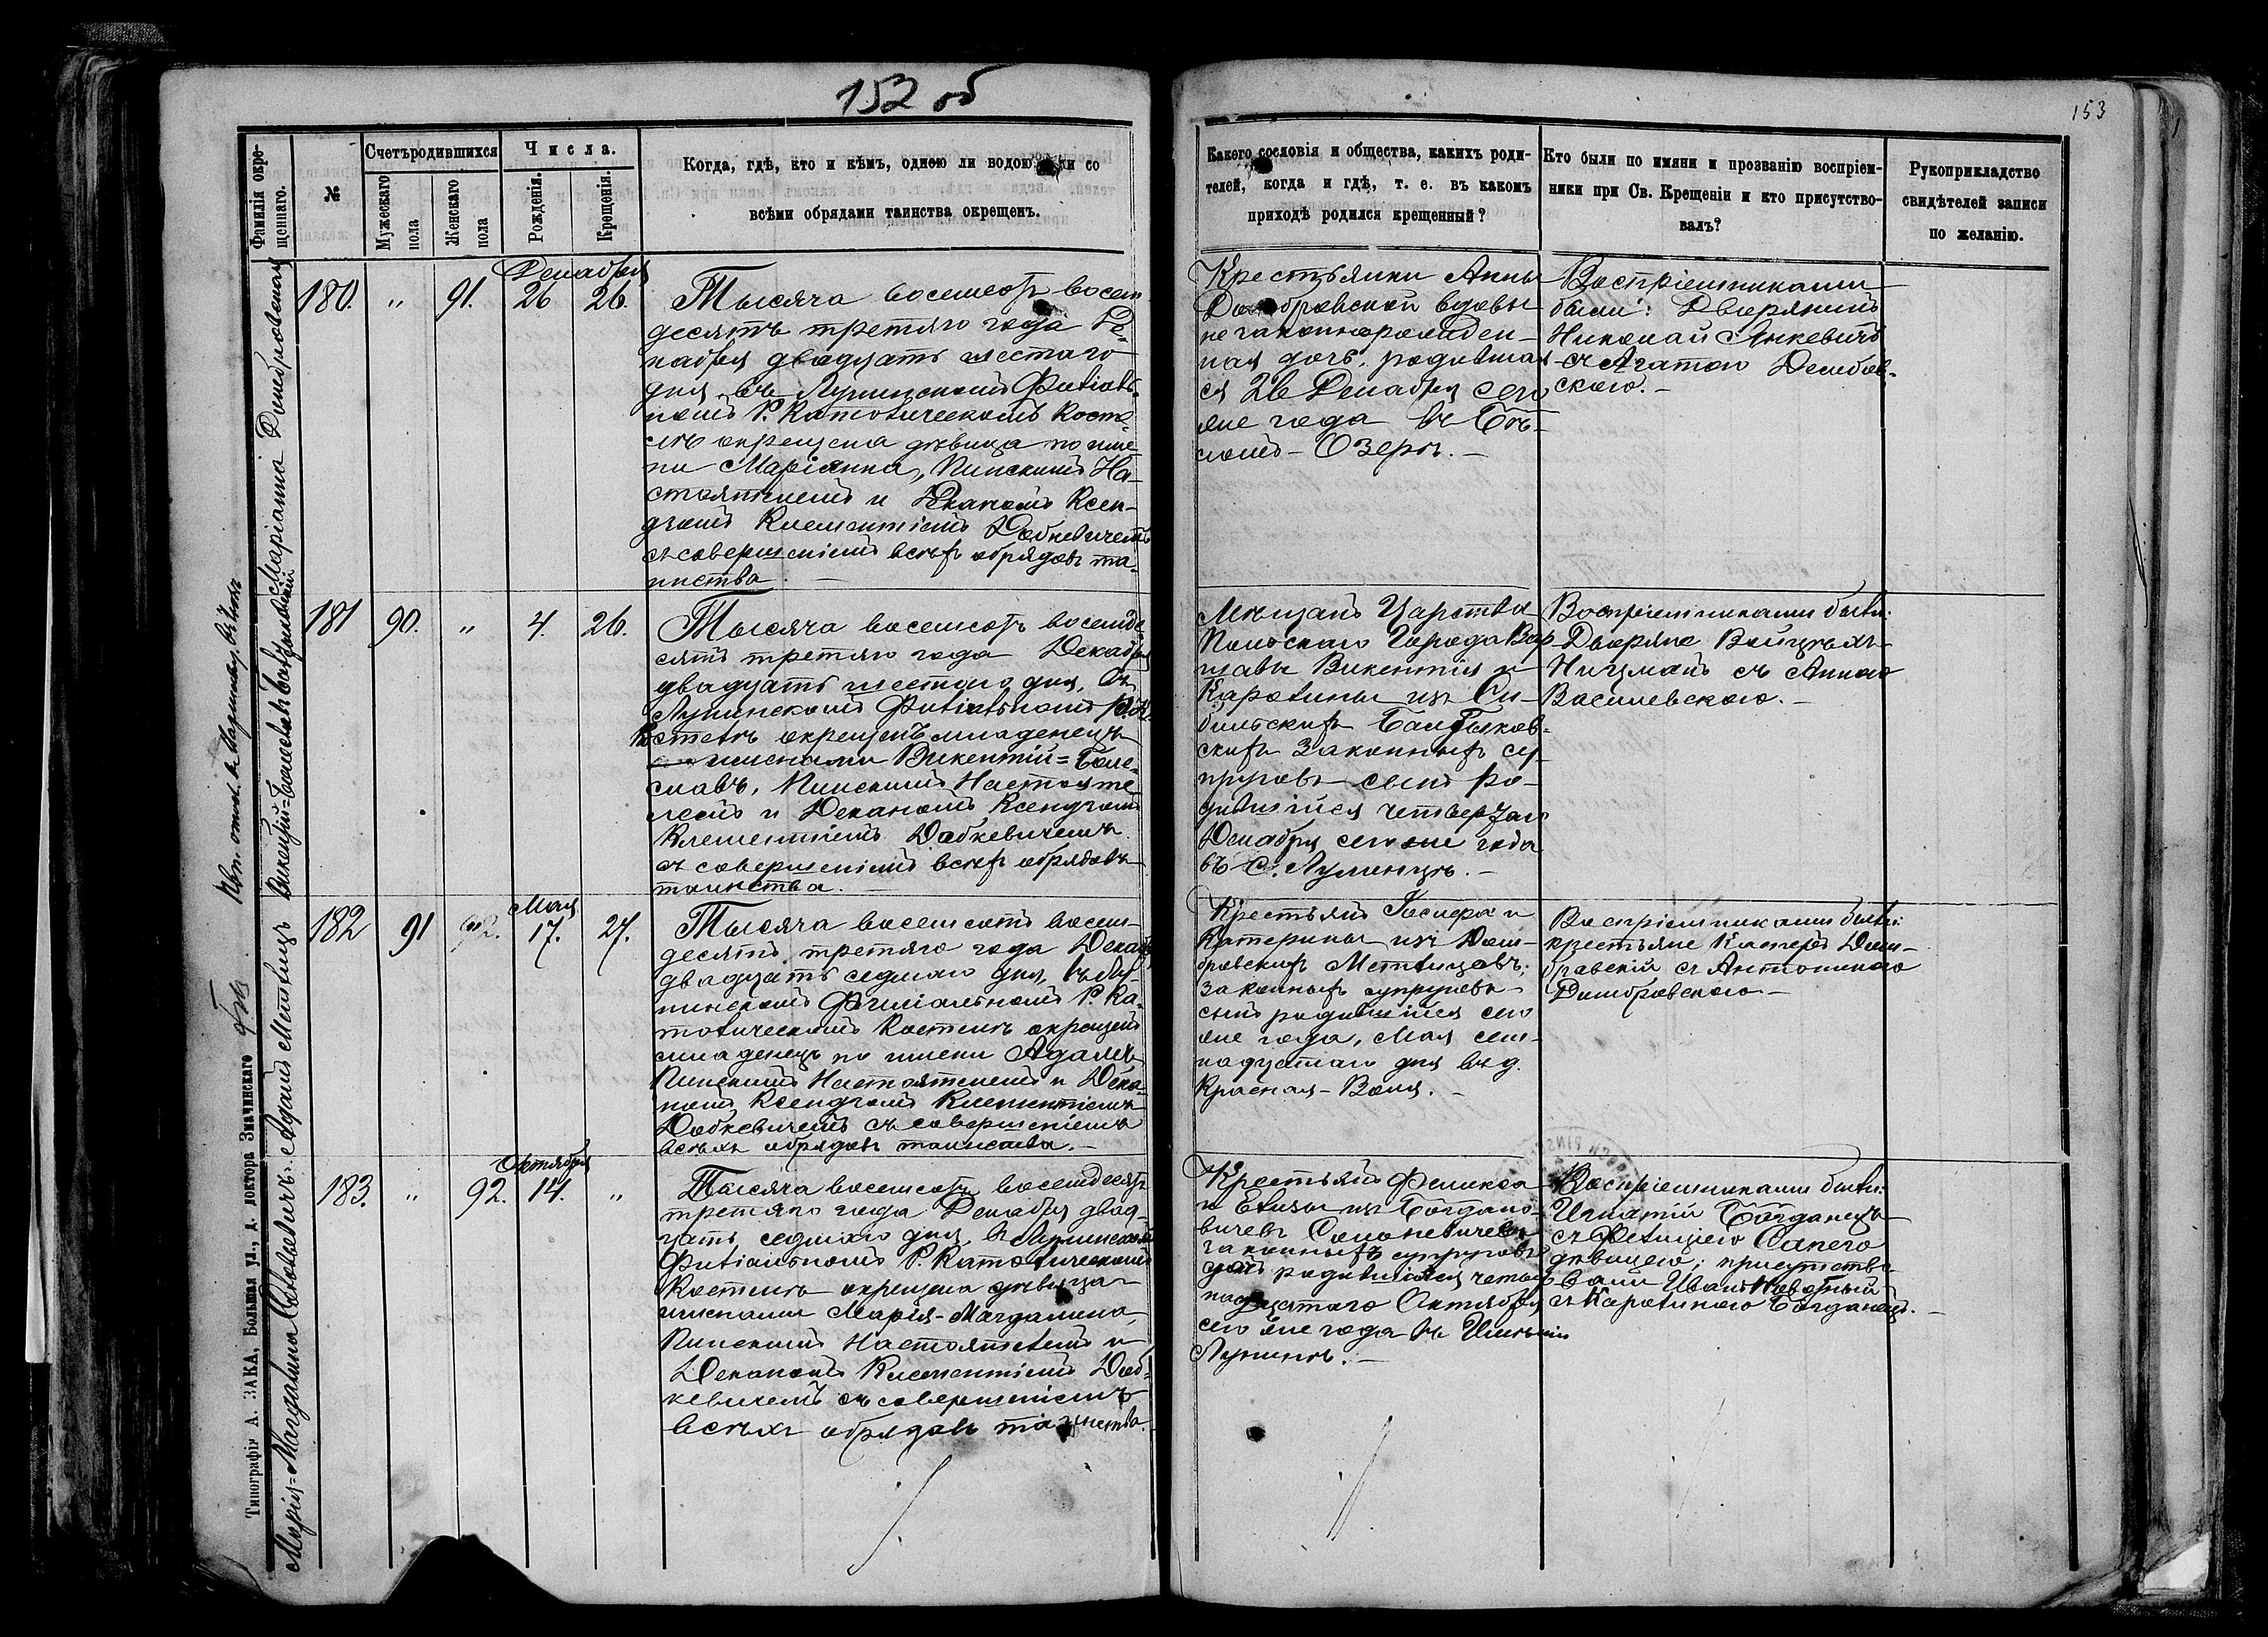 152 об
153
Фамилія окрещеннаго.
№
Счетъ родившихся
Мужескаго пола
Женскаго пола
Числа.
Рожденія.
Крещенія.
Когда, гдѣ, кто и кѣмъ, одною ли водою или со
всѣми обрядами таинства окрещенъ.
Какого сословія и общества, какихъ роди-
телей, когда и гдѣ, т. е. въ какомъ
приходѣ родился крещенный?
Кто были по имяни и прозванію воспріем-
ники при Св. Крещеніи и кто присутство-
валъ?
Рукоприкладство
свидѣтелей записи
по желанію.
Маріанна Домбровская
180.
"
91.
Декабря
26
26.
Тысяча восемсотъ восем
десятъ третяго года Де-
кабря двадцать шестаго
дня, въ Лунинскомъ Филіаль-
номъ Р. Католическомъ Косте-
лѣ окрещена дѣвица по име-
ни Маріанна, Пинскимъ На-
стоятелемъ и Деканомъ Ксен-
дзомъ Клементіемъ Добкевичемъ
съ совершеніемъ всѣхъ обрядовъ та-
инства.
Крестьянки Анны
Домбровской вдовы
незаконнорожден-
ная дочь, родившая-
ся 26 Декабря сего
же года въ Бѣ-
ломъ-Озерѣ.
Воспріемниками
были: Дворянинъ
Николай Янкевичъ
съ Агатою Домбров-
скою.
Викентій-Болеславъ
181
90.
"
4.
26.
Тысяча восемсотъ восемде-
сятъ третяго года Декабря
двадцать шестого дня, въ
Лунинскомъ Филіальномъ Р. К.
Костелѣ окрещенъ младенецъ
именами Викентій=Боле-
славъ, Пинскимъ Настояте-
лемъ и Деканомъ Ксендзомъ
Клементіемъ Добкевичемъ
съ совершеніемъ всѣхъ обрядовъ
таинства.
Мѣщанъ Царства
Польскаго Города Вар
шавы Викентія и
Каролины изъ
скихъ Законныхъ су-
пруговъ сынъ ро-
дившійся четвертаго
Декабря сего же года
въ С. Лунинцѣ.
Воспріемниками были:
Дворяне Войцѣхъ
Ницманъ съ Анною
Василевскою.
Адамъ Метлицъ
182
91
92.
Мая
17.
27.
Тысяча восемсотъ восем-
десятъ третяго года Декаб
двадцать седмаго дня, въ Лу-
нинскомъ Филіальномъ Р. Ка-
толическомъ Костелѣ окрещенъ
младенецъ по имени Адамъ
Пинскимъ Настоятелемъ и Дека-
номъ Ксендзомъ Клементіемъ
Добкевичемъ съ совершеніемъ
всѣхъ обрядовъ таинства.
Крестьянъ Каспера и
Катерины изъ Дом-
бровскихъ Метлицовъ,
законныхъ супруговъ
сынъ родившійся сего
же года, Мая сем-
надцатаго дня въ д.
Красная-Воля.
Воспріемниками были:
крестьяне Касперъ Дом-
бровскій съ Антониною
Домбровскою
Марія=Магдалина
183.
"
92.
Октября
14.
"
Тысяча восемсотъ восемдесятъ
третяго года Декабря двад-
цать седмаго дня, въ Лунинскомъ
Филіальномъ Р. Католическомъ
Костелѣ окрещена дѣвица
именами Марія-Магдалина,
Пинскимъ Настоятелемъ и
Деканомъ Клементіемъ Доб-
кевичемъ съ совершеніемъ
всѣхъ обрядовъ таинства.
Крестьянъ Феликса
и Елизы изъ Богдано-
вичевъ
законныхъ супруговъ
родившаяся четыр
надцатаго Октября
сего же года въ Имѣніи
Лунинѣ.
Воспріемниками были:
Игнатій Богданецъ
съ Фелиціею Сапего
дѣвицею; присутство-
вали Иванъ
съ Каролиною Богданецъ.
Типографія А. ЗАКА, Большая ул., д. доктора Значинскаго